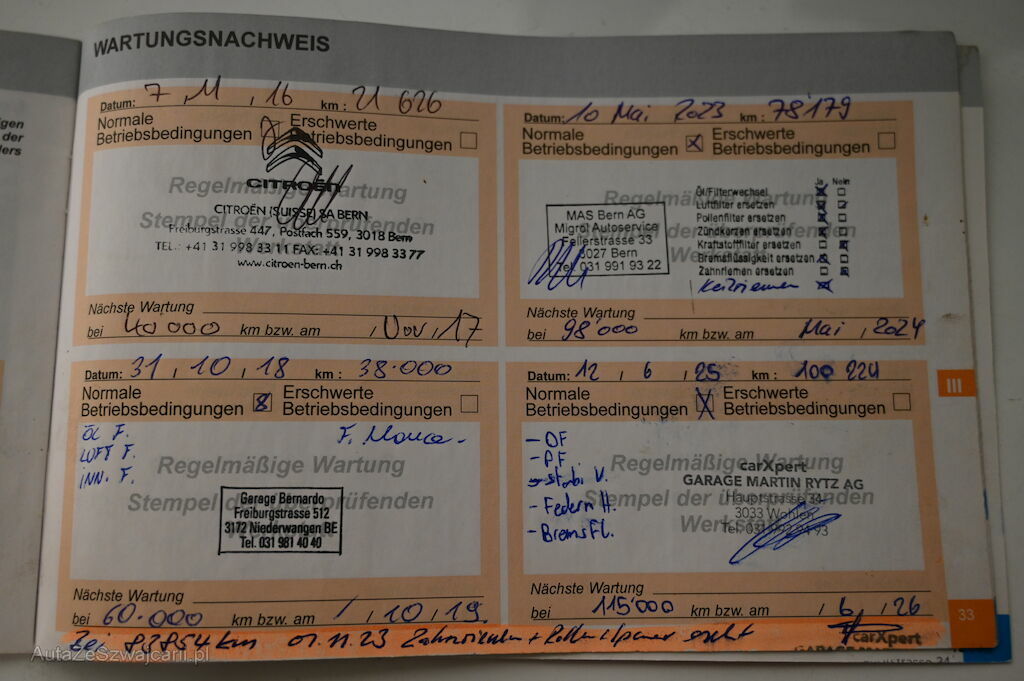 WARTUNGSNACHWEIS
igen
der
ders
Datum: 7 , 11 , 16 km : 21 626
Normale Betriebsbedingungen
Erschwerte Betriebsbedingungen
Regelmäßige Wartung
Stempel der überprüfenden
CITROËN
CITROËN (SUISSE) SA BERN
Freiburgstrasse 447, Postfach 559, 3018 Bern
TEL.: +41 31 998 33 11 FAX: +41 31 998 33 77
www.citroen-bern.ch
Nächste Wartung
bei 40000 km bzw. am / Nov / 17
Datum: 10 Mai 2023 km : 78'179
Normale Betriebsbedingungen
Erschwerte Betriebsbedingungen
Regelmäßige Wartung
Stempel der überprüfenden
MAS Bern AG
Migrol Autoservice
Fellerstrasse 33
3027 Bern
Tel. 031 991 93 22
Ja Nein
Öl/Filterwechsel
Luftfilter ersetzen
Pollenfilter ersetzen
Zündkerzen ersetzen
Kraftstofffilter ersetzen
Bremsflüssigkeit ersetzen
Zahnriemen ersetzen
Keilriemen
Nächste Wartung
bei 98'000 km bzw. am Mai , 2024
Datum: 31 , 10 , 18 km : 38.000
Normale Betriebsbedingungen
Erschwerte Betriebsbedingungen
ÖL F.
LUFT F.
INN. F.
Regelmäßige Wartung
Stempel der überprüfenden
Garage Bernardo
Freiburgstrasse 512
3172 Niederwangen BE
Tel. 031 981 40 40
Nächste Wartung
bei 60.000 km bzw. am / , 10 , 19.
Datum: 12 , 6 , 25 km : 100 224
Normale Betriebsbedingungen
Erschwerte Betriebsbedingungen
- ÖF
- PF
- Stabi V.
- Federn H.
- BremsFl.
Regelmäßige Wartung
Stempel der überprüfenden
Werkstatt
carXpert
GARAGE MARTIN RYTZ AG
Hauptstrasse 34
3033 Wohlen
Nächste Wartung
bei 115'000 km bzw. am / 6 / 26
III
33
Bei km 01.11.23 Zahnriemen +
carXpert
AutaZeSzwajcarii.pl